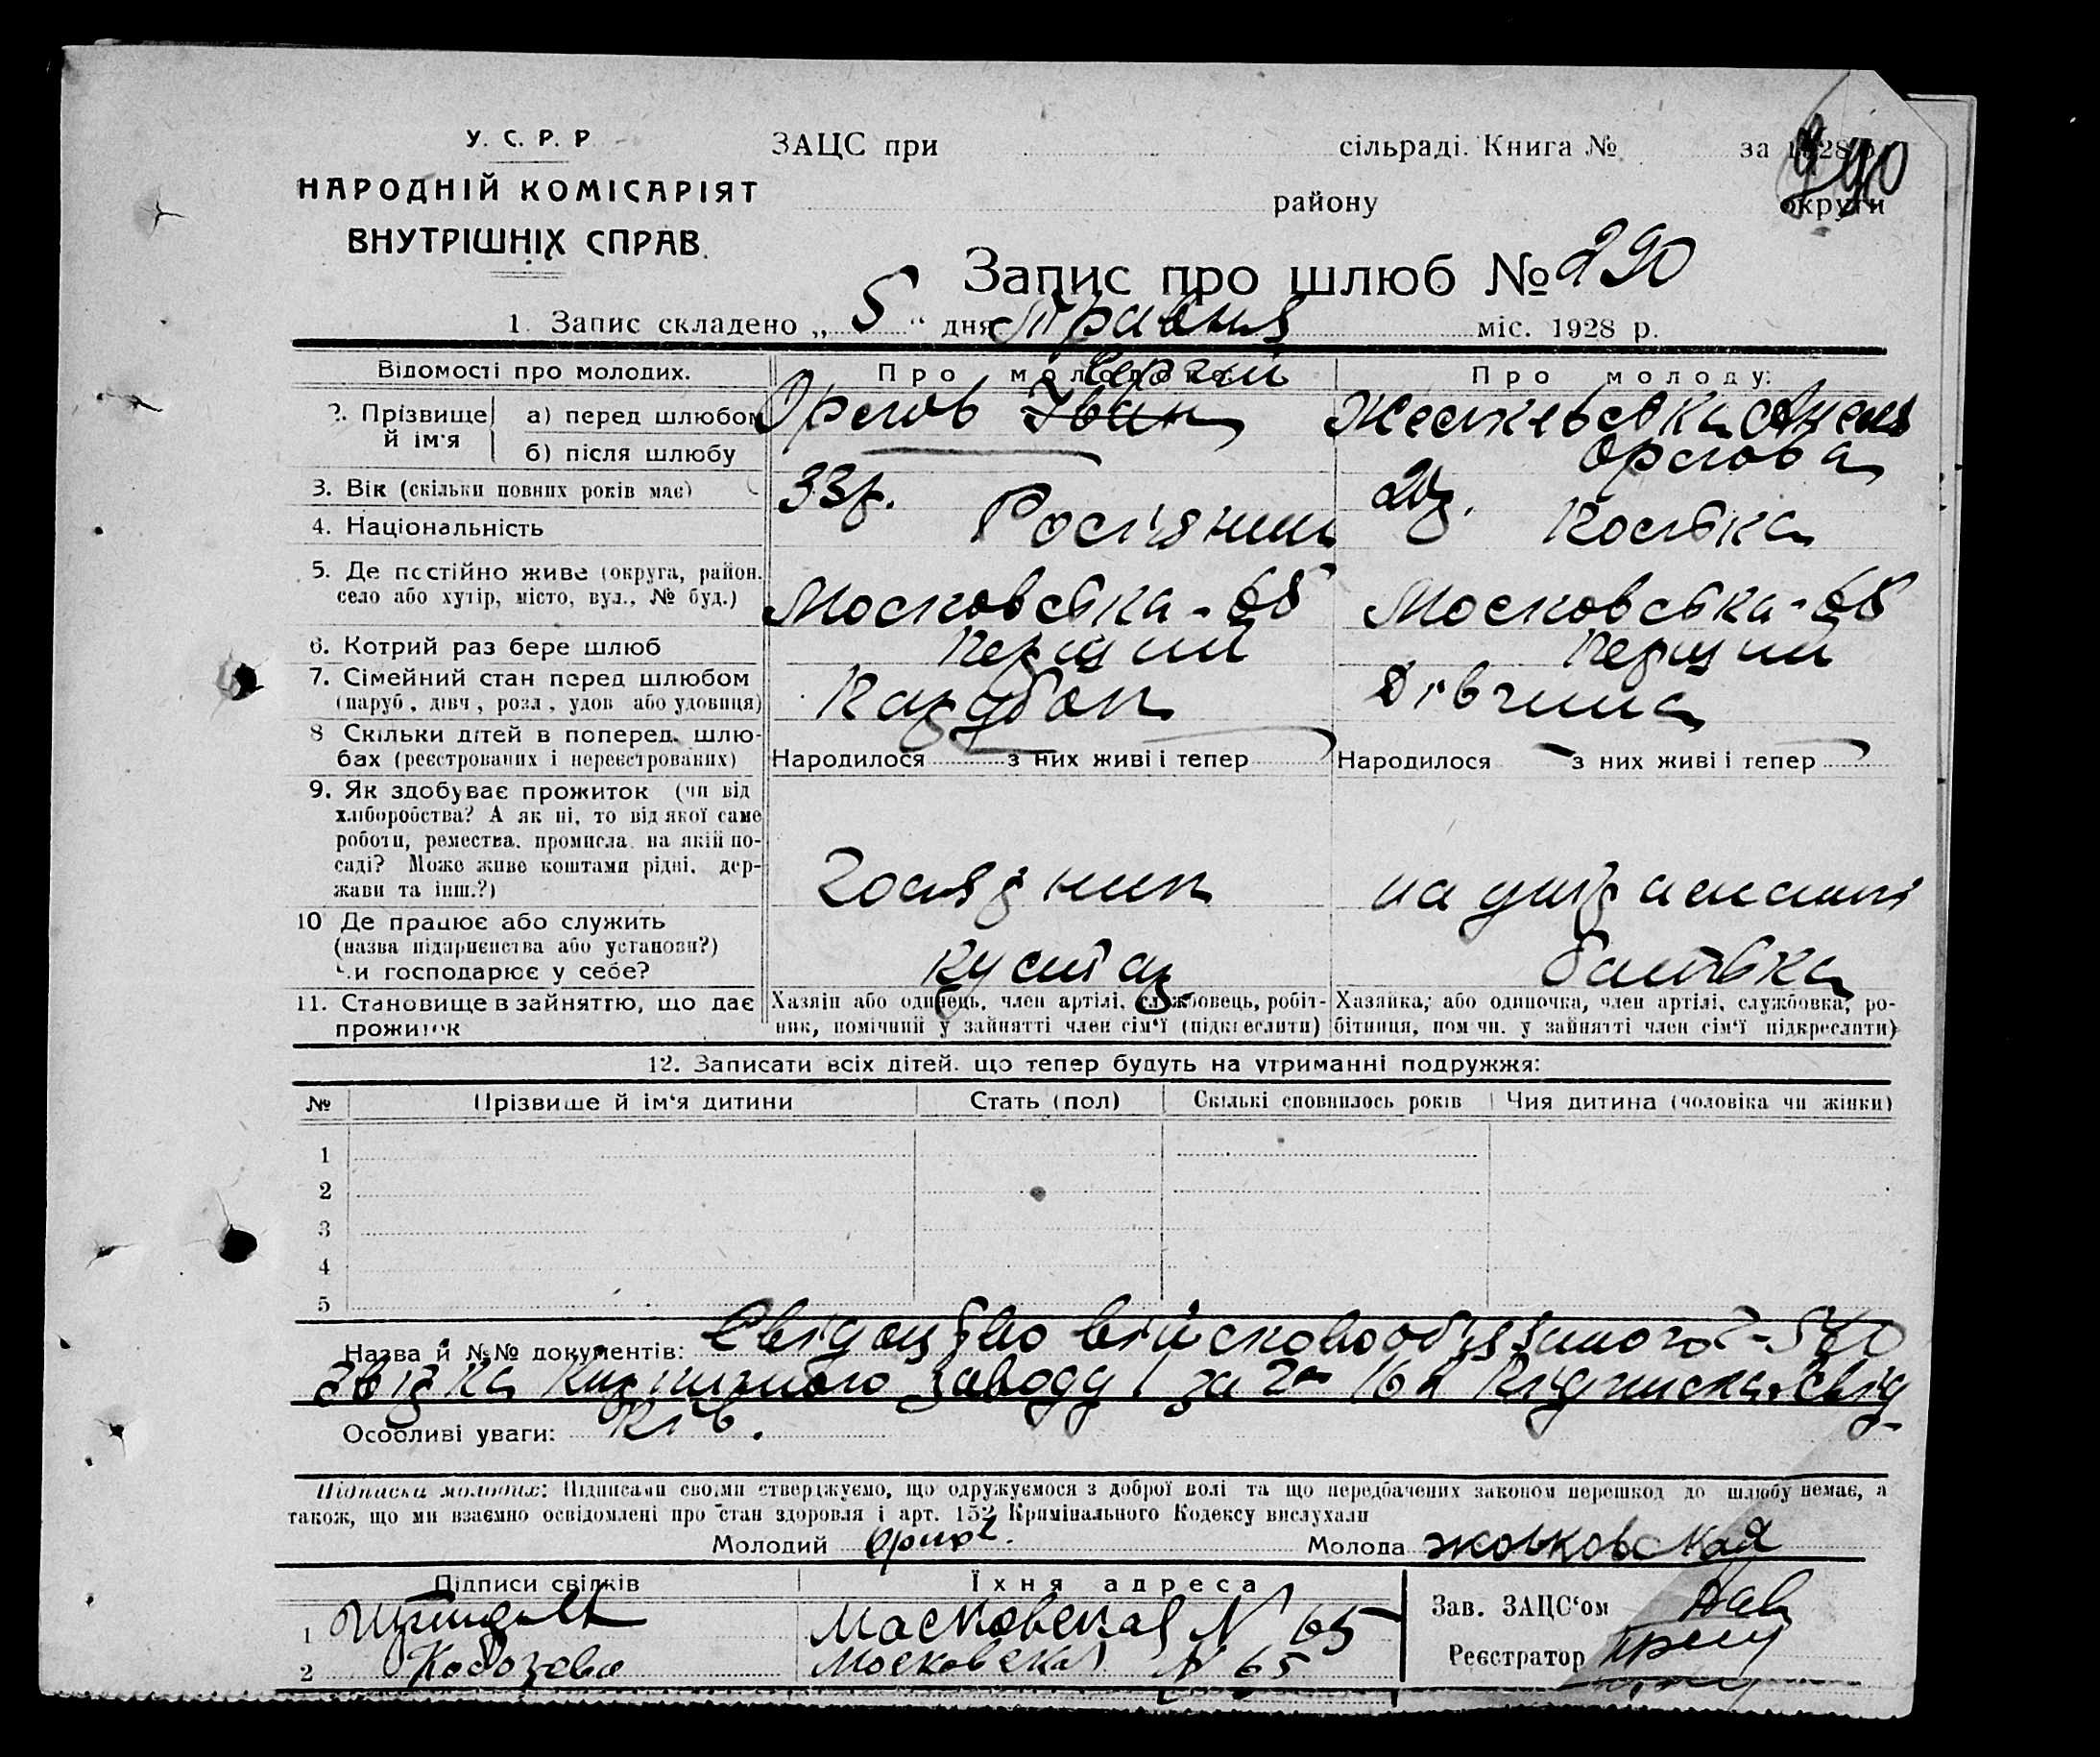 У. С. Р. Р
ЗАЦС при сільраді. Книга № за 1928 р.
290
НАРОДНІЙ КОМІСАРІЯТ
району округи
ВНУТРІШНІХ СПРАВ.
Запис про шлюб № 290
1. Запис складено „ 5 “ дня Травня міс. 1928 р.
Відомості про молодих.
Про молодого
Про молоду:
Сергій
2. Прізвище й ім'я
а) перед шлюбом
Орлов Іван
б) після шлюбу
Орлова
3. Вік (скільки повних років має)
33р.
20р.
4. Національність
Росіянин
Полька
5. Де постійно живе (округа, район.
село або хутір, місто, вул., № буд.)
Московська - 65
Московська - 65
6. Котрий раз бере шлюб
Перший
Перший
7. Сімейний стан перед шлюбом
(паруб., дівч., розл., удов. або удовиця)
Парубок
Дівчина
8 Скільки дітей в поперед. шлю-
бах (реєстрованих і нереєстрованих)
Народилося з них живі і тепер
Народилося з них живі і тепер
9. Як здобуває прожиток (чи від
хліборобства? А як ні, то від якої саме
роботи, ремества, промисла, на якій по-
саді? Може живе коштами рідні, дер-
жави та інш.?)
на утриманні
10 Де працює або служить
(назва підприємства або установи?)
чи господарює у себе?
кустар
батька
11. Становище в зайняттю, що дає
прожиток
Хазяїн або одинець, член артілі, службовець, робіт-
ник, помічний у зайнятті член сім'ї (підкреслити)
Хазяйка, або одиночка, член артілі, службовка, ро-
бітниця, пом чн. у зайнятті член сім'ї підкреслити)
12. Записати всіх дітей. що тепер будуть на утриманні подружжя:
№
Прізвище й ім'я дитини
Стать (пол)
Скількі сповнилось років
Чия дитина (чоловіка чи жінки)
1
2
3
4
5
Назва й №№ документів: Свідоцтво військовообязаного
завода за Підписка свід
Особливі уваги: ків.
Підписи молодих: Підписами своїми стверджуємо, що одружуємося з доброї волі та що передбачених законом перешкод до шлюбу немає, а
також, що ми взаємно освідомлені про стан здоровля і арт. 152 Кримінального Кодексу вислухали
Молодий Орлов.
Молода жолковская
Підписи свідків
Їхня адреса
1 Московская N 65
2 Московская N 65
Зав. ЗАЦС'ом
Реєстратор